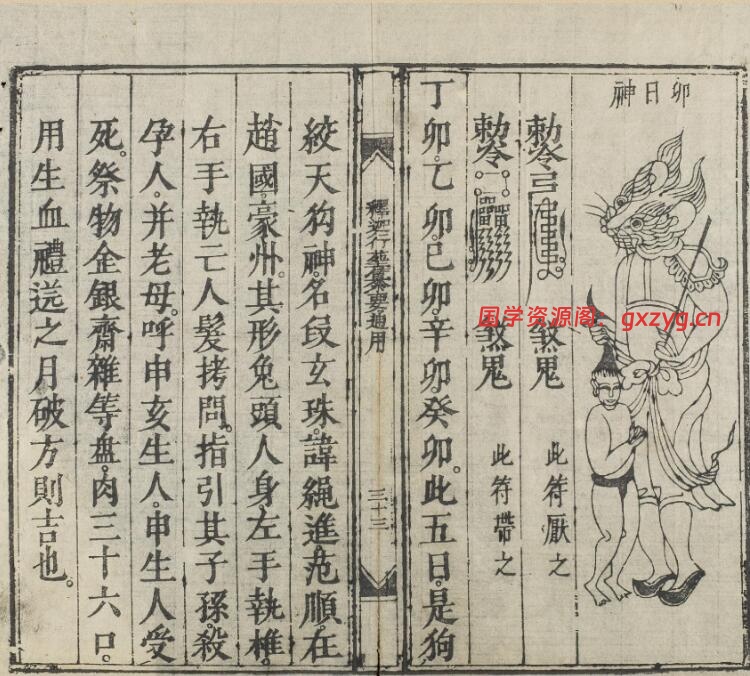 卯日神
勅令
煞鬼
此符厭之
勅令
煞鬼
此符帶之
丁卯。乙卯。己卯。辛卯。癸卯。此五日。是狗
三十三
絞天狗神。名叚玄珠。諱繩進。范順。在
趙國。豪州。其形兔頭人身。左手執椎。
右手執亡人髮拷問。指引其子孫。殺
孕人。并老母。呼申亥生人。申生人受
死。祭物金銀齋雜等盘。肉三十六口。
用生血禮送之月破方則吉也。
国学资源阁：gxzyg.cn